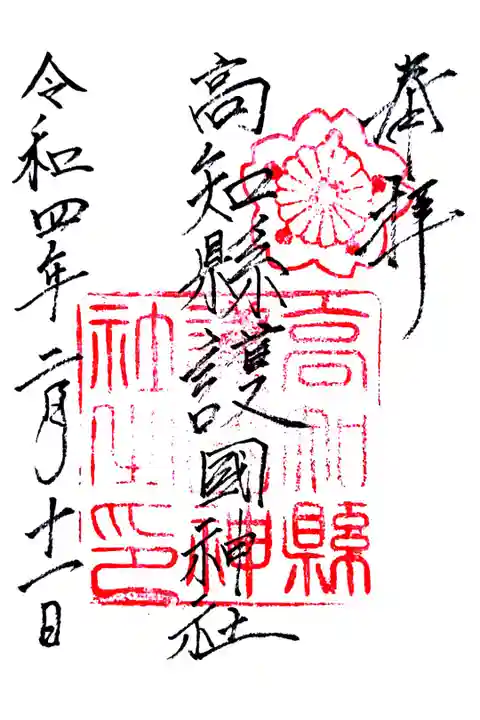 奉拝
高知縣護國神社
令和四年二月十一日
高知縣
護國神
社之印